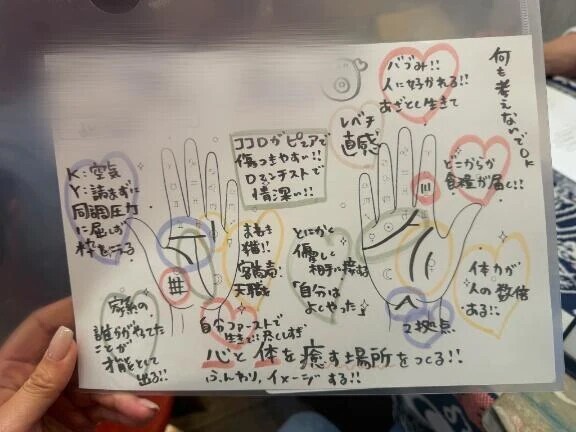 何も考えないでOK
バブみ!!
人に好かれる!!
あざとく生きて
レベチ
直感
ココロがピュアで
傷つきやすい!!
ロマンチストで
情深い!!
どこからか
食糧が届く!!
K:空気
Y:読まずに
同調圧力
に屈しず
枠を
まねき
猫!!
客商売!
天職
とにかく
優しく
相手に接する
「自分は
よしやった」
体力が
人の数倍
ある!!
家系の
誰かがやってた
ことが
才能として
出る!!
自分ファーストで
2拠点
心と体を癒す場所をつくる!!
ふんわり、イメージする!!